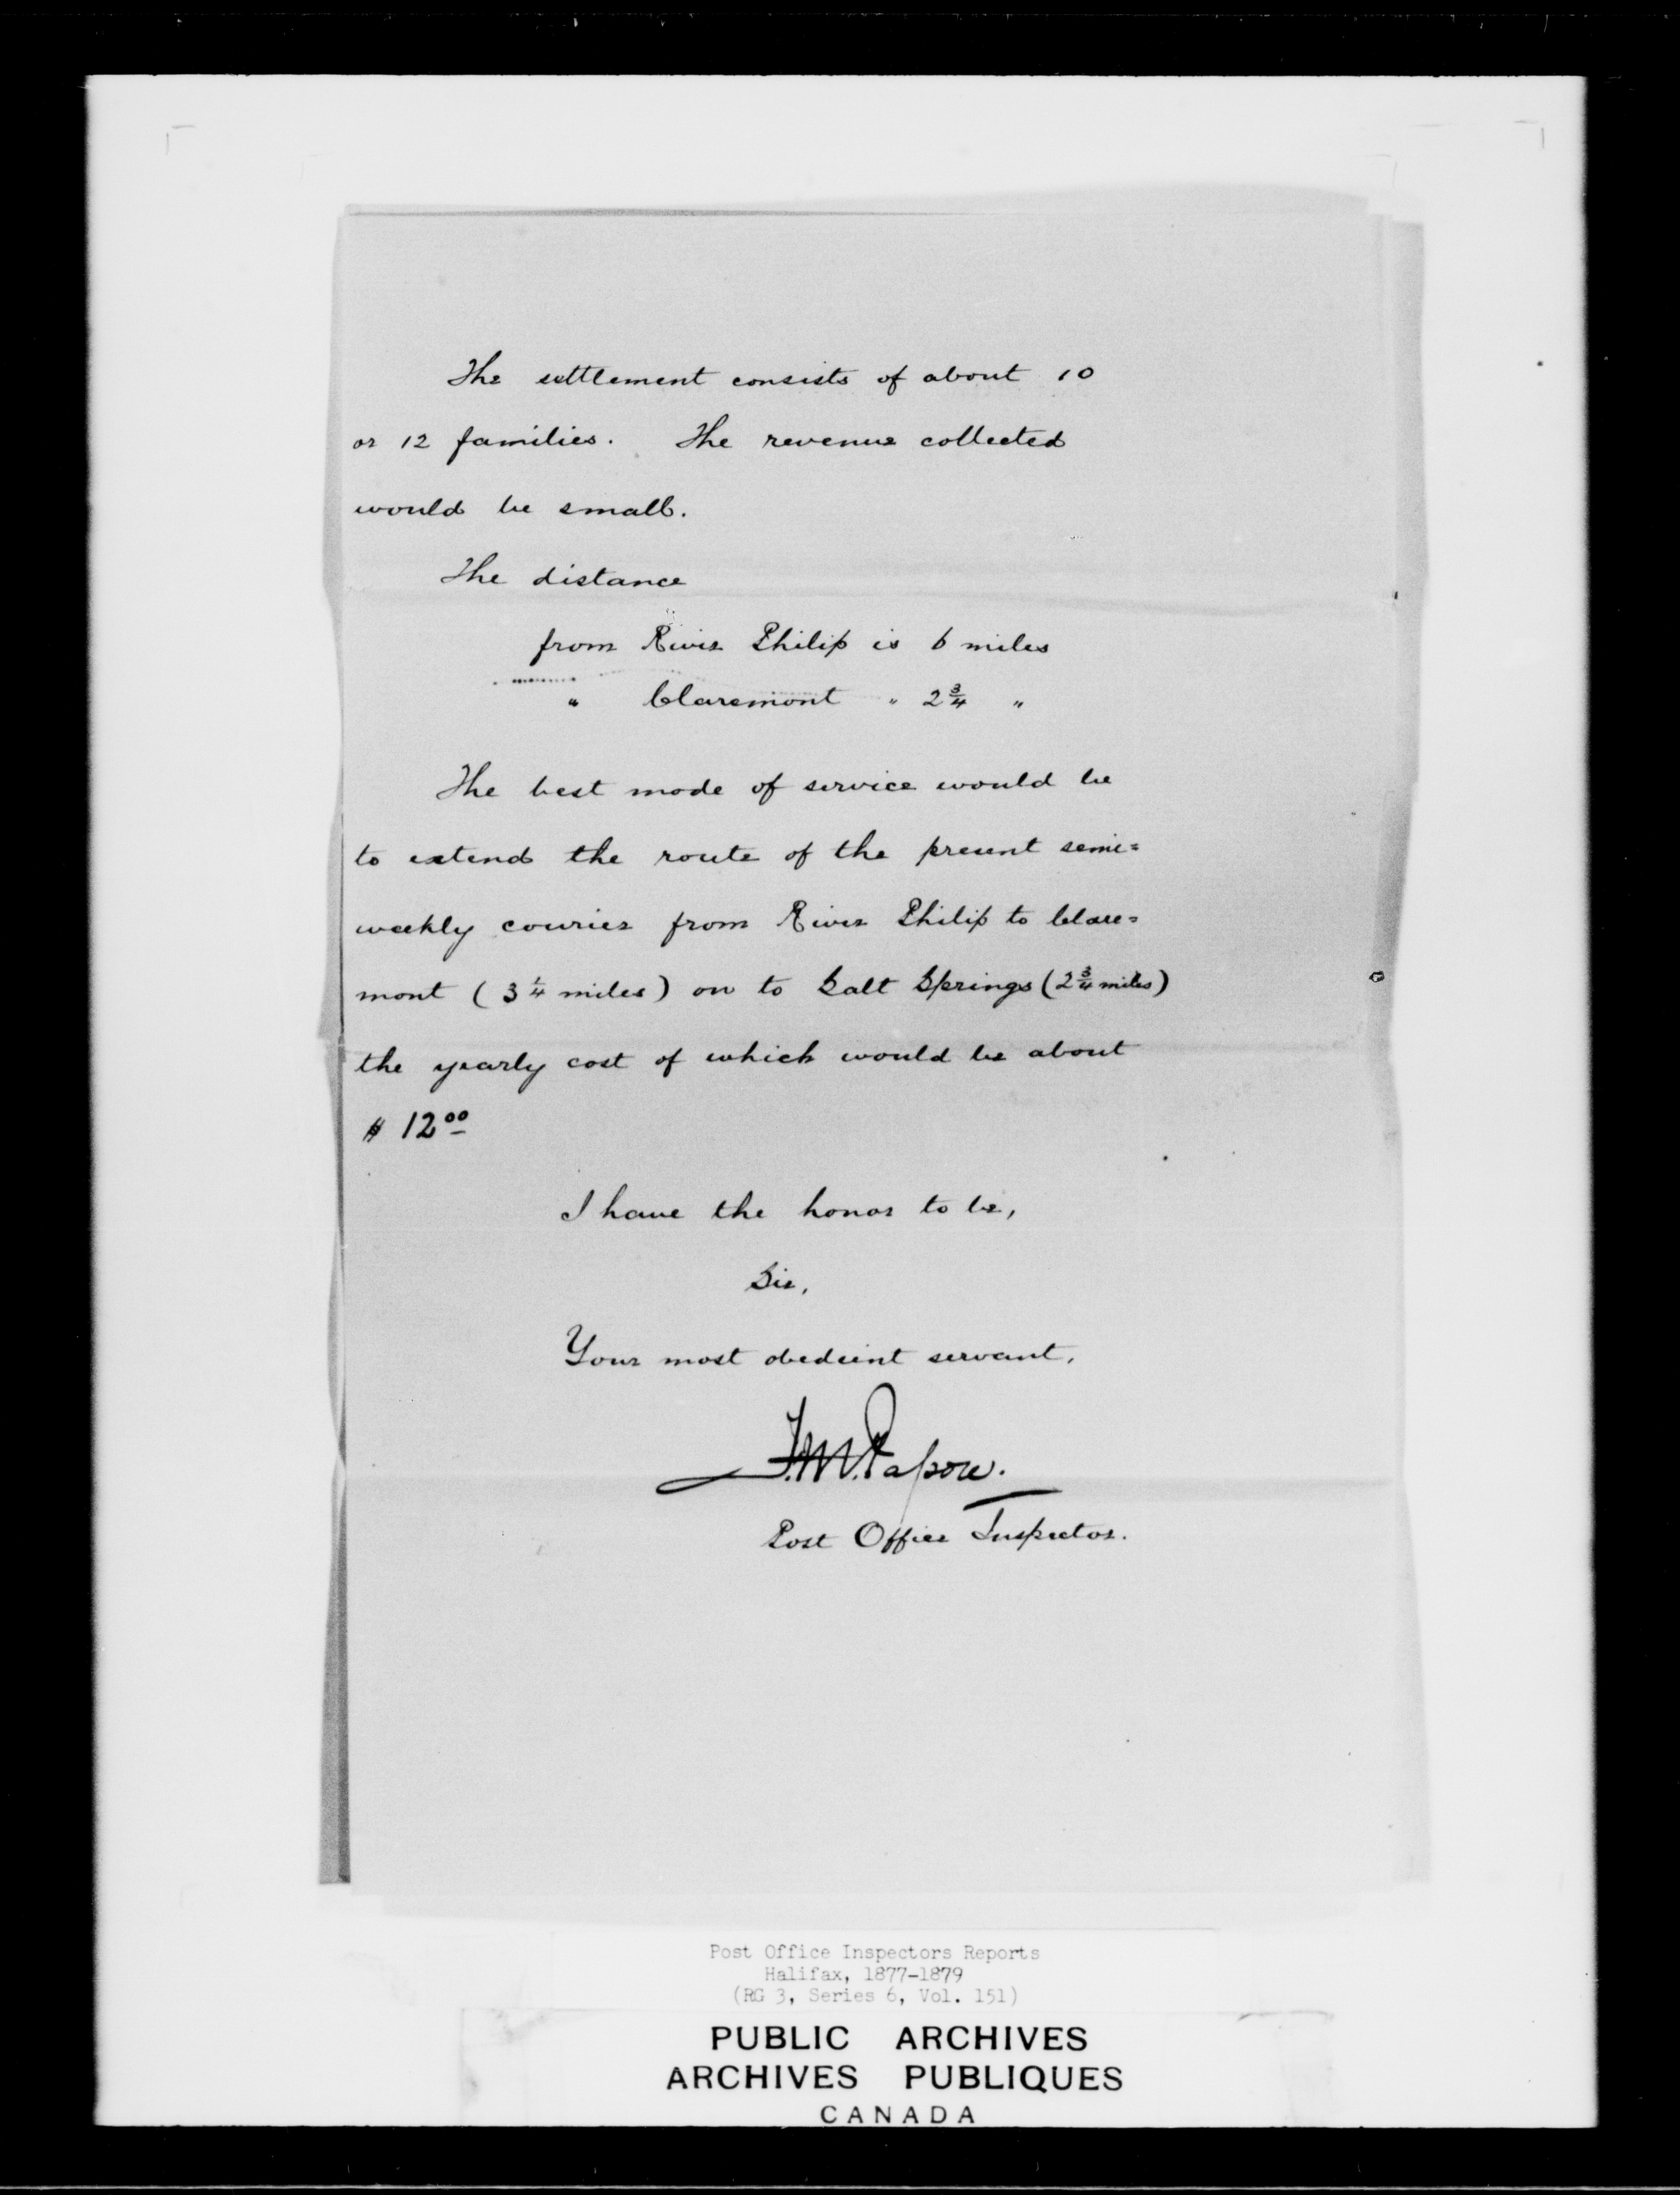 The settlement consists of about 10
or 12 families. The revenue collected
would be small.
The distance
from River Philip is 6 miles
" Claremont " 2¾ "
The best mode of service would be
to extend the route of the present semi=
weekly courier from River Philip to Clare=
mont (3¼ miles) on to Salt Springs (2¾ miles)
the yearly cost of which would be about
$ 12 00
I have the honor to be,
Sir,
Your most obedient servant,
Post Office Inspector.
Post Office Inspectors Reports
Halifax, 1877-1879
(RG 3, Series 6, Vol. 151)
PUBLIC ARCHIVES
ARCHIVES PUBLIQUES
CANADA